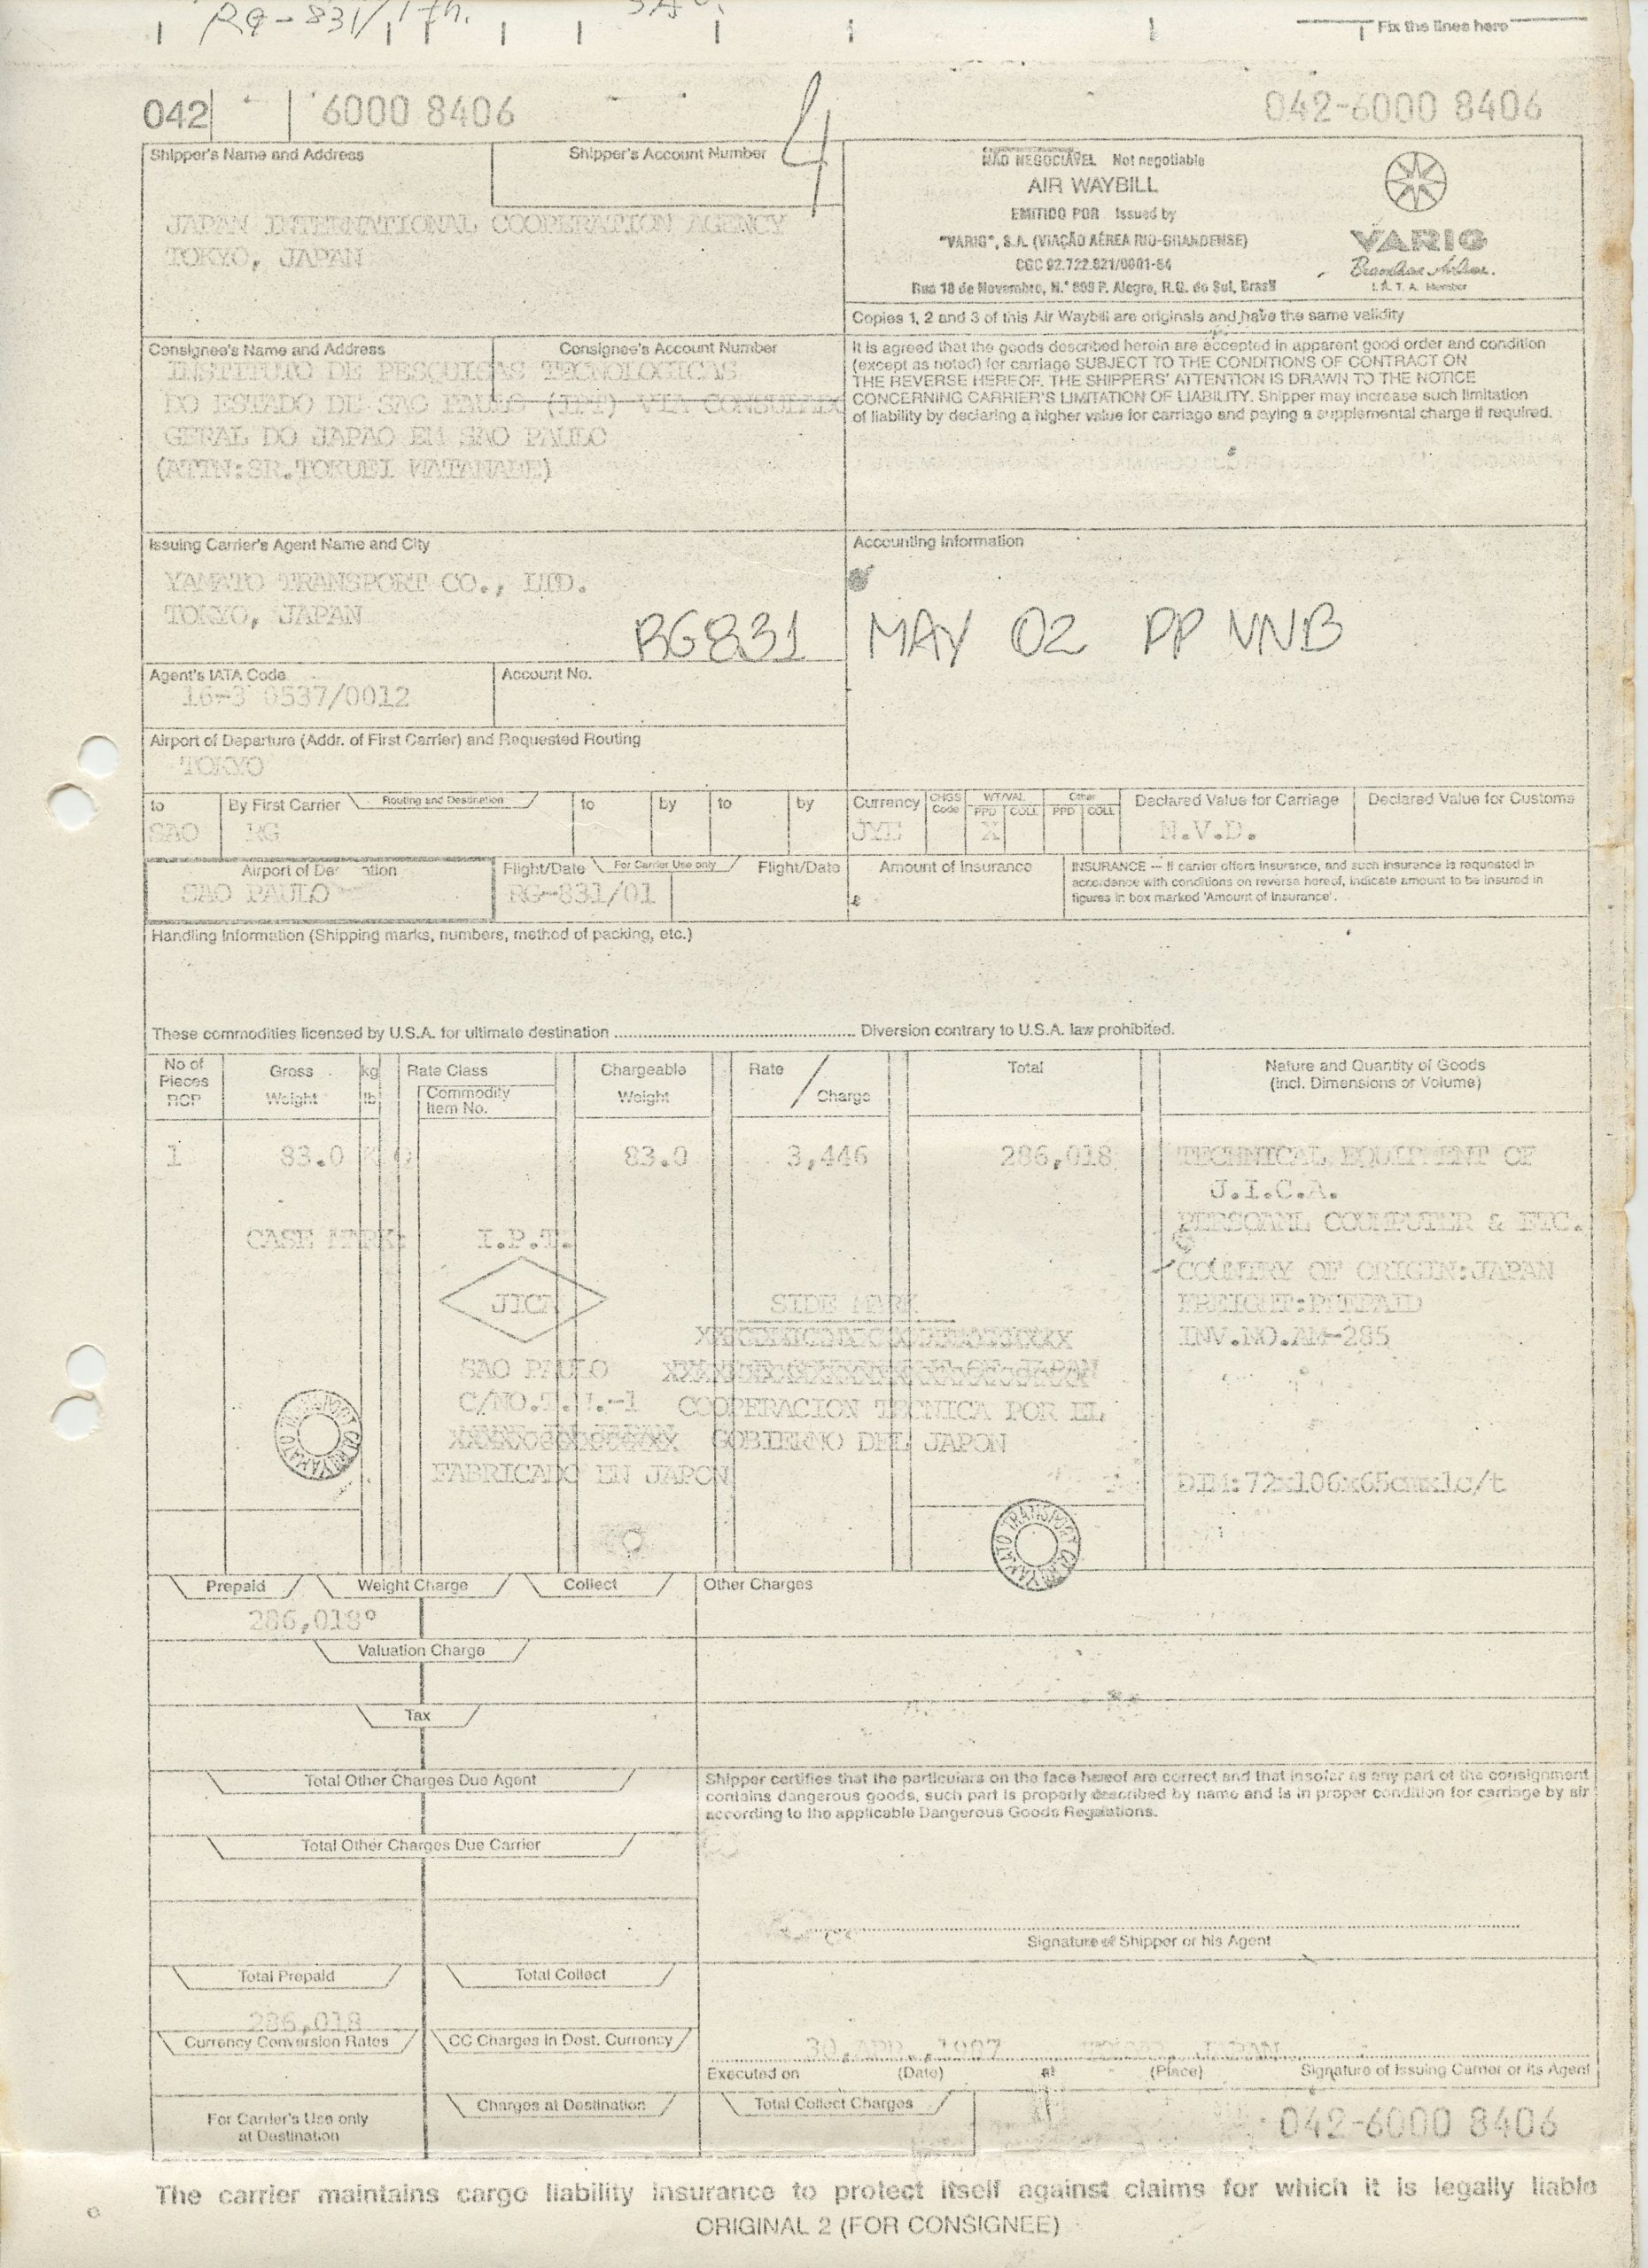 RG-831/1th.
Fix the lines here
042 6000 8406 042-6000 8406
4
Shipper's Name and Address
Shipper's Account Number
JAPAN INTERNATIONAL COOPERATION AGENCY
TOKYO, JAPAN
NÃO NEGOCIÁVEL Not negotiable
AIR WAYBILL
EMITIDO POR Issued by
"VARIG", S.A. (VIAÇÃO AÉREA RIO-GRANDENSE)
CGC 92.722.821/0001-64
Rua 18 de Novembro, N.º 800 P. Alegre, R.G. do Sul, Brasil
VARIG
Brazilian Airlines.
I.A.T.A. Member
Copies 1, 2 and 3 of this Air Waybill are originals and have the same validity
Consignee's Name and Address
Consignee's Account Number
INSTITUTO DE PESQUISAS TECNOLOGICAS
DO ESTADO DE SAO PAULO (IPT) VIA CONSULADO
GERAL DO JAPAO EM SAO PAULO
(ATTN:SR.TOKUEI WATANABE)
It is agreed that the goods described herein are accepted in apparent good order and condition
(except as noted) for carriage SUBJECT TO THE CONDITIONS OF CONTRACT ON
THE REVERSE HEREOF. THE SHIPPERS' ATTENTION IS DRAWN TO THE NOTICE
CONCERNING CARRIER'S LIMITATION OF LIABILITY. Shipper may increase such limitation
of liability by declaring a higher value for carriage and paying a supplemental charge if required.
Issuing Carrier's Agent Name and City
YAMATO TRANSPORT CO., LTD.
TOKYO, JAPAN
Accounting Information
RG831 MAY 02 PP VNB
Agent's IATA Code
16-3 0537/0012
Account No.
Airport of Departure (Addr. of First Carrier) and Requested Routing
TOKYO
to By First Carrier Routing and Destination to by to by
SAO RG
Currency CHGS Code WT/VAL PPD COLL Other PPD COLL Declared Value for Carriage Declared Value for Customs
JYE X N.V.D.
Airport of Destination
SAO PAULO
Flight/Date For Carrier Use only Flight/Date
RG-831/01
Amount of Insurance
INSURANCE — If carrier offers Insurance, and such insurance is requested in
accordance with conditions on reverse hereof, indicate amount to be insured in
figures in box marked 'Amount of Insurance'.
Handling Information (Shipping marks, numbers, method of packing, etc.)
These commodities licensed by U.S.A. for ultimate destination ........ Diversion contrary to U.S.A. law prohibited.
No of Pieces RCP
Gross Weight
kg lb
Rate Class
Commodity Item No.
Chargeable Weight
Rate / Charge
Total
Nature and Quantity of Goods
(incl. Dimensions or Volume)
1 83.0 K Q 83.0 3,446 286,018
TECHNICAL EQUIPMENT OF
J.I.C.A.
PERSOANL COUMPUTER & ETC.
COUNTRY OF ORIGIN:JAPAN
FREIGHT:PREPAID
INV.NO.AM-285
DIM:72x106x65cmx1c/t
CASE MARK:
I.P.T.
JICA
SAO PAULO
FABRICADO EN JAPON
SIDE MARK
COOPERACION TECNICA POR EL
GOBIERNO DEL JAPON
YAMATO TRANSPORT
YAMATO TRANSPORT
Prepaid Weight Charge Collect
286,018
Other Charges
Valuation Charge
Tax
Total Other Charges Due Agent
Shipper certifies that the particulars on the face hereof are correct and that insofar as any part of the consignment
contains dangerous goods, such part is properly described by name and is in proper condition for carriage by air
according to the applicable Dangerous Goods Regulations.
Total Other Charges Due Carrier
Signature of Shipper or his Agent
Total Prepaid Total Collect
286,018
Currency Conversion Rates CC Charges in Dest. Currency
30.APR.,1987 TOKYO, JAPAN
Executed on (Date) at (Place) Signature of Issuing Carrier or its Agent
For Carrier's Use only
at Destination
Charges at Destination
Total Collect Charges
042-6000 8406
The carrier maintains cargo liability insurance to protect itself against claims for which it is legally liable
ORIGINAL 2 (FOR CONSIGNEE)